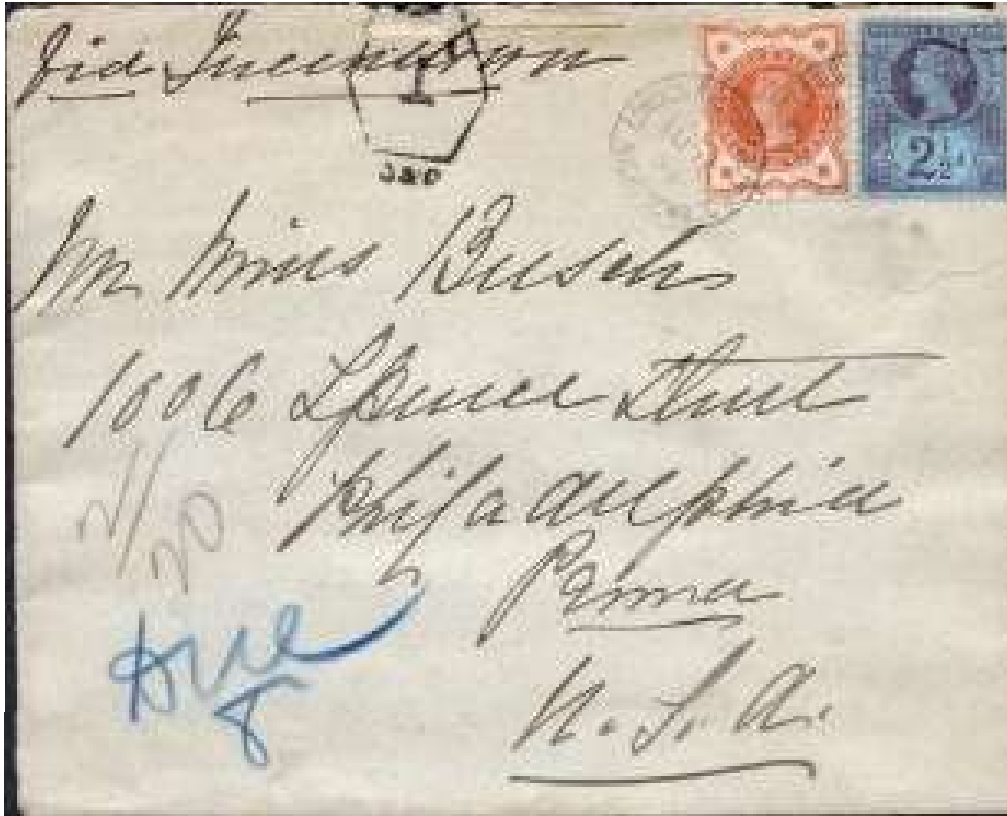 Via Queenstown
T
2½d
Miss Busch
1006 Spruce Street
Philadelphia
Penna
U.S.A.
Due
8